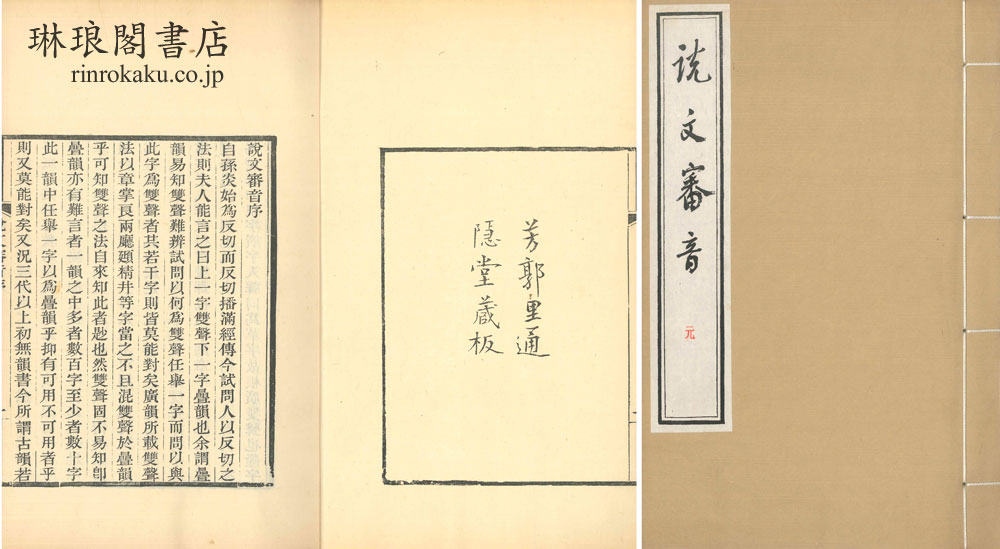 琳琅閣書店
rinrokaku.co.jp
説文審音
元
芳郭里通
隠堂蔵板
說文審音序
自孫炎始爲反切而反切播滿經傳今試問人以反切之
法則夫人能言之曰上一字雙聲下一字疊韻也余謂疊
韻易知雙聲難辨試問以何爲雙聲任舉一字而問以與
此字爲雙聲者其若干字則皆莫能對矣廣韻所載雙聲
法以章掌良兩廳頲精井等字當之不且混雙聲於疊韻
乎可知雙聲之法自來知此者尟也然雙聲固不易知卽
疊韻亦有難言者一韻之中多者數百字至少者數十字
此一韻中任舉一字以爲疊韻乎抑有可用不可用者乎
則又莫能對矣又況三代以上初無韻書今所謂古韻若